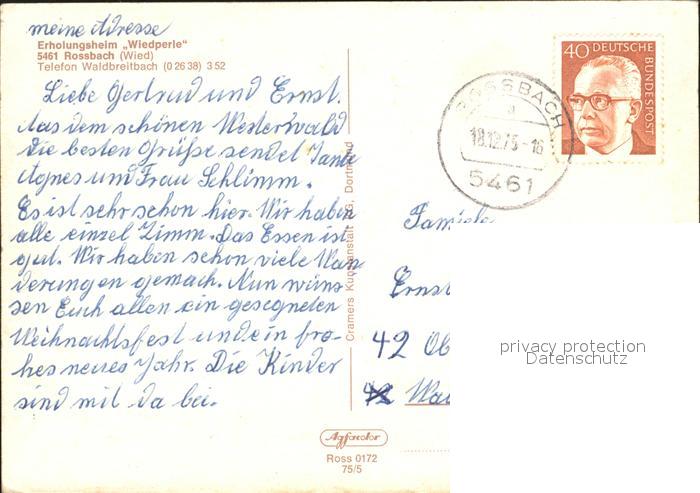 meine Adresse
Erholungsheim „Wiedperle"
5461 Rossbach (Wied)
Telefon Waldbreitbach (0 26 38) 3 52
Liebe Gertrud und Ernst.
Aus dem schönen Westerwald
die besten Grüße sendet Tante
Agnes und Frau Schlimm.
Es ist sehr schon hier. Wir haben
alle einzel Zimm. Das Essen ist
gut. Wir haben schon viele Wan
derungen gemach. Nun wüns
sen Euch allen ein gesegneten
Weihnachtsfest und ein fro-
hes neues Jahr. Die Kinder
sind mit da bei.
Cramers Kunstanstalt KG, Dortmund
Agfacolor
Ross 0172
75/5
40 DEUTSCHE
BUNDESPOST
ROSSBACH
a
18.12.75-16
5461
Familie
Ernst
42 Ob
42 Wa
privacy protection
Datenschutz